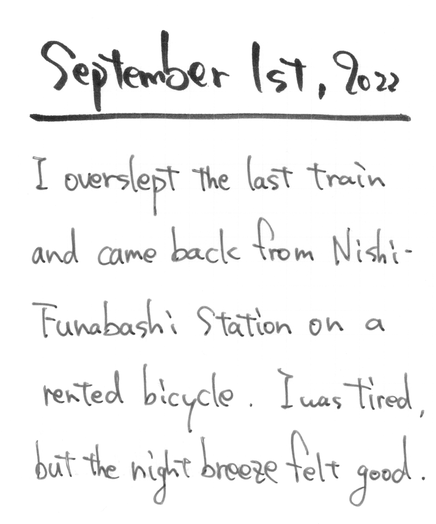 September 1st, 2022
I overslept the last train
and came back from Nishi-
Funabashi Station on a
rented bicycle. I was tired,
but the night breeze felt good.